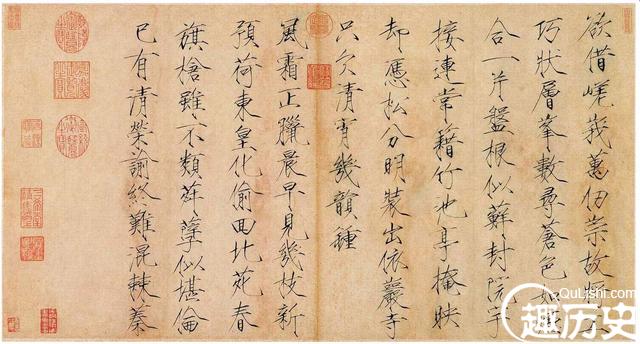 欲借嵯峩萬仞崇故將工
巧狀層峯數尋蒼色如
合一片盤根似蘚封院宇
接連常籍竹池亭掩映
却憑松分明裝出依巖寺
只欠清宵幾韻鍾
風霜正臘晨早見幾枝新
預荷東皇化偷回北苑春
旗槍雖不類荈孽似堪倫
已有清榮諭終難混棘蓁
QuLishi.com
趣历史